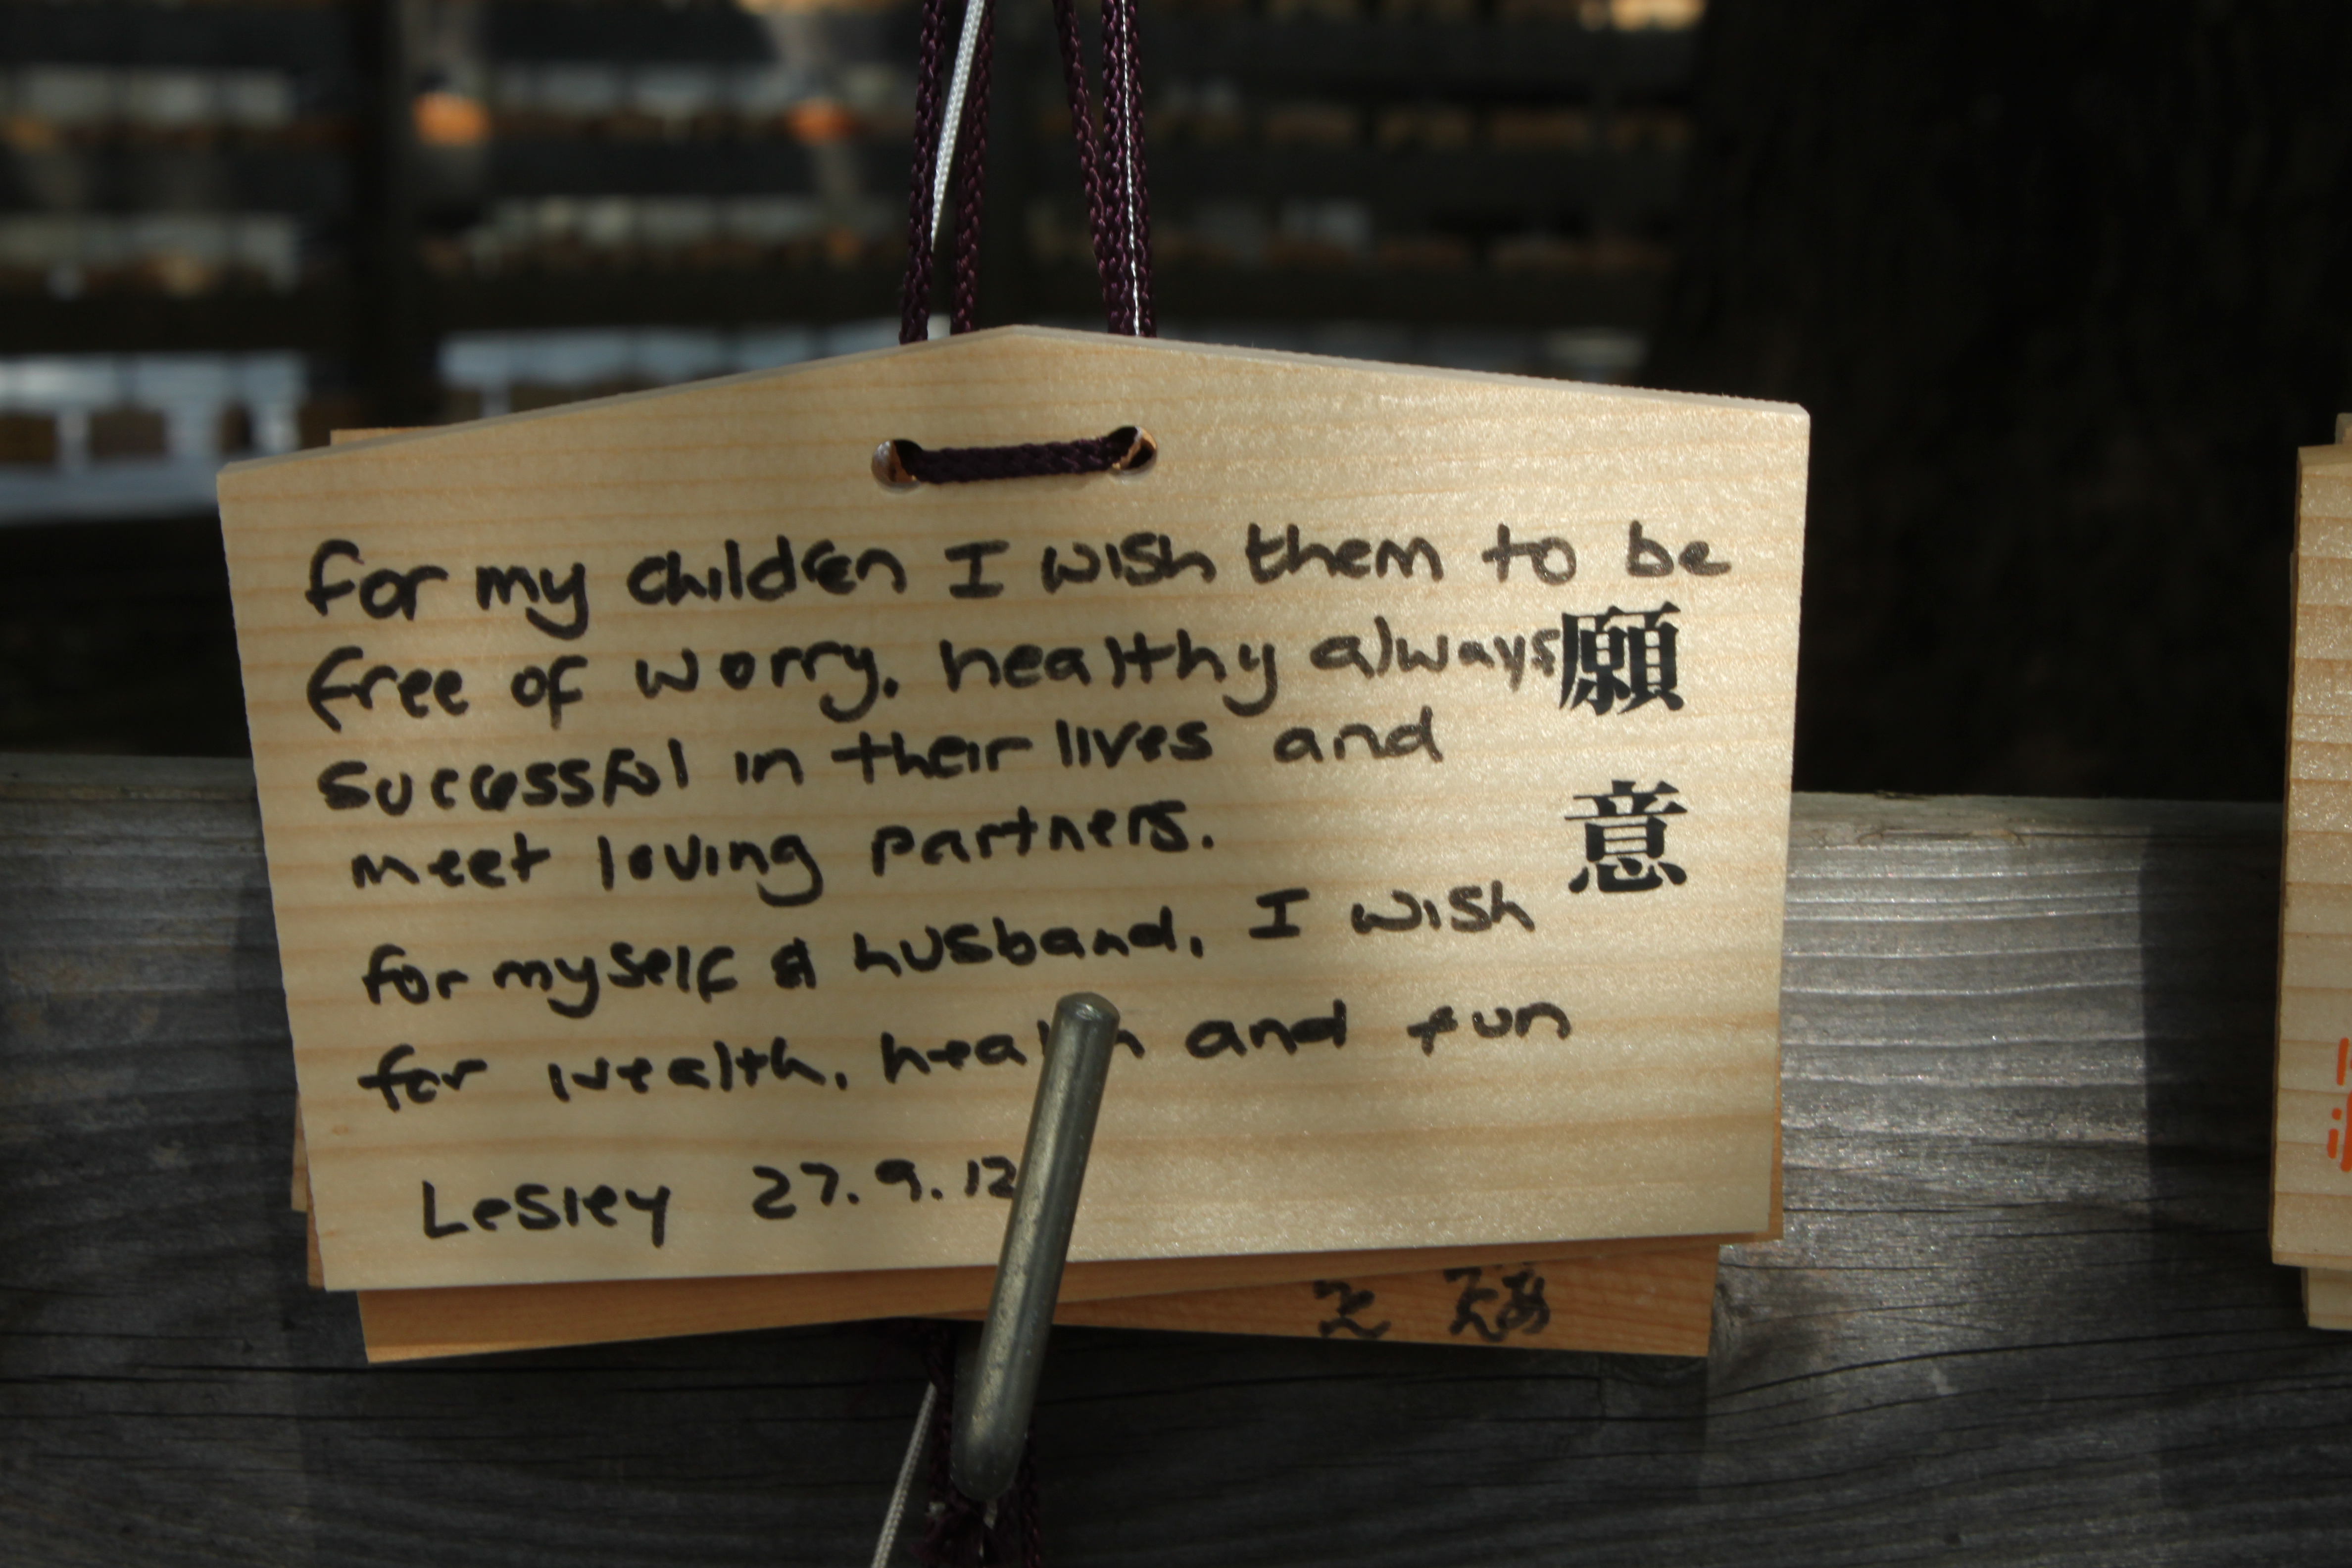 for my children I wish them to be
free of worry, healthy always
successful in their lives and
meet loving partners.
for myself & husband, I wish
for wealth, health and fun
Lesley 27.9.12
願意